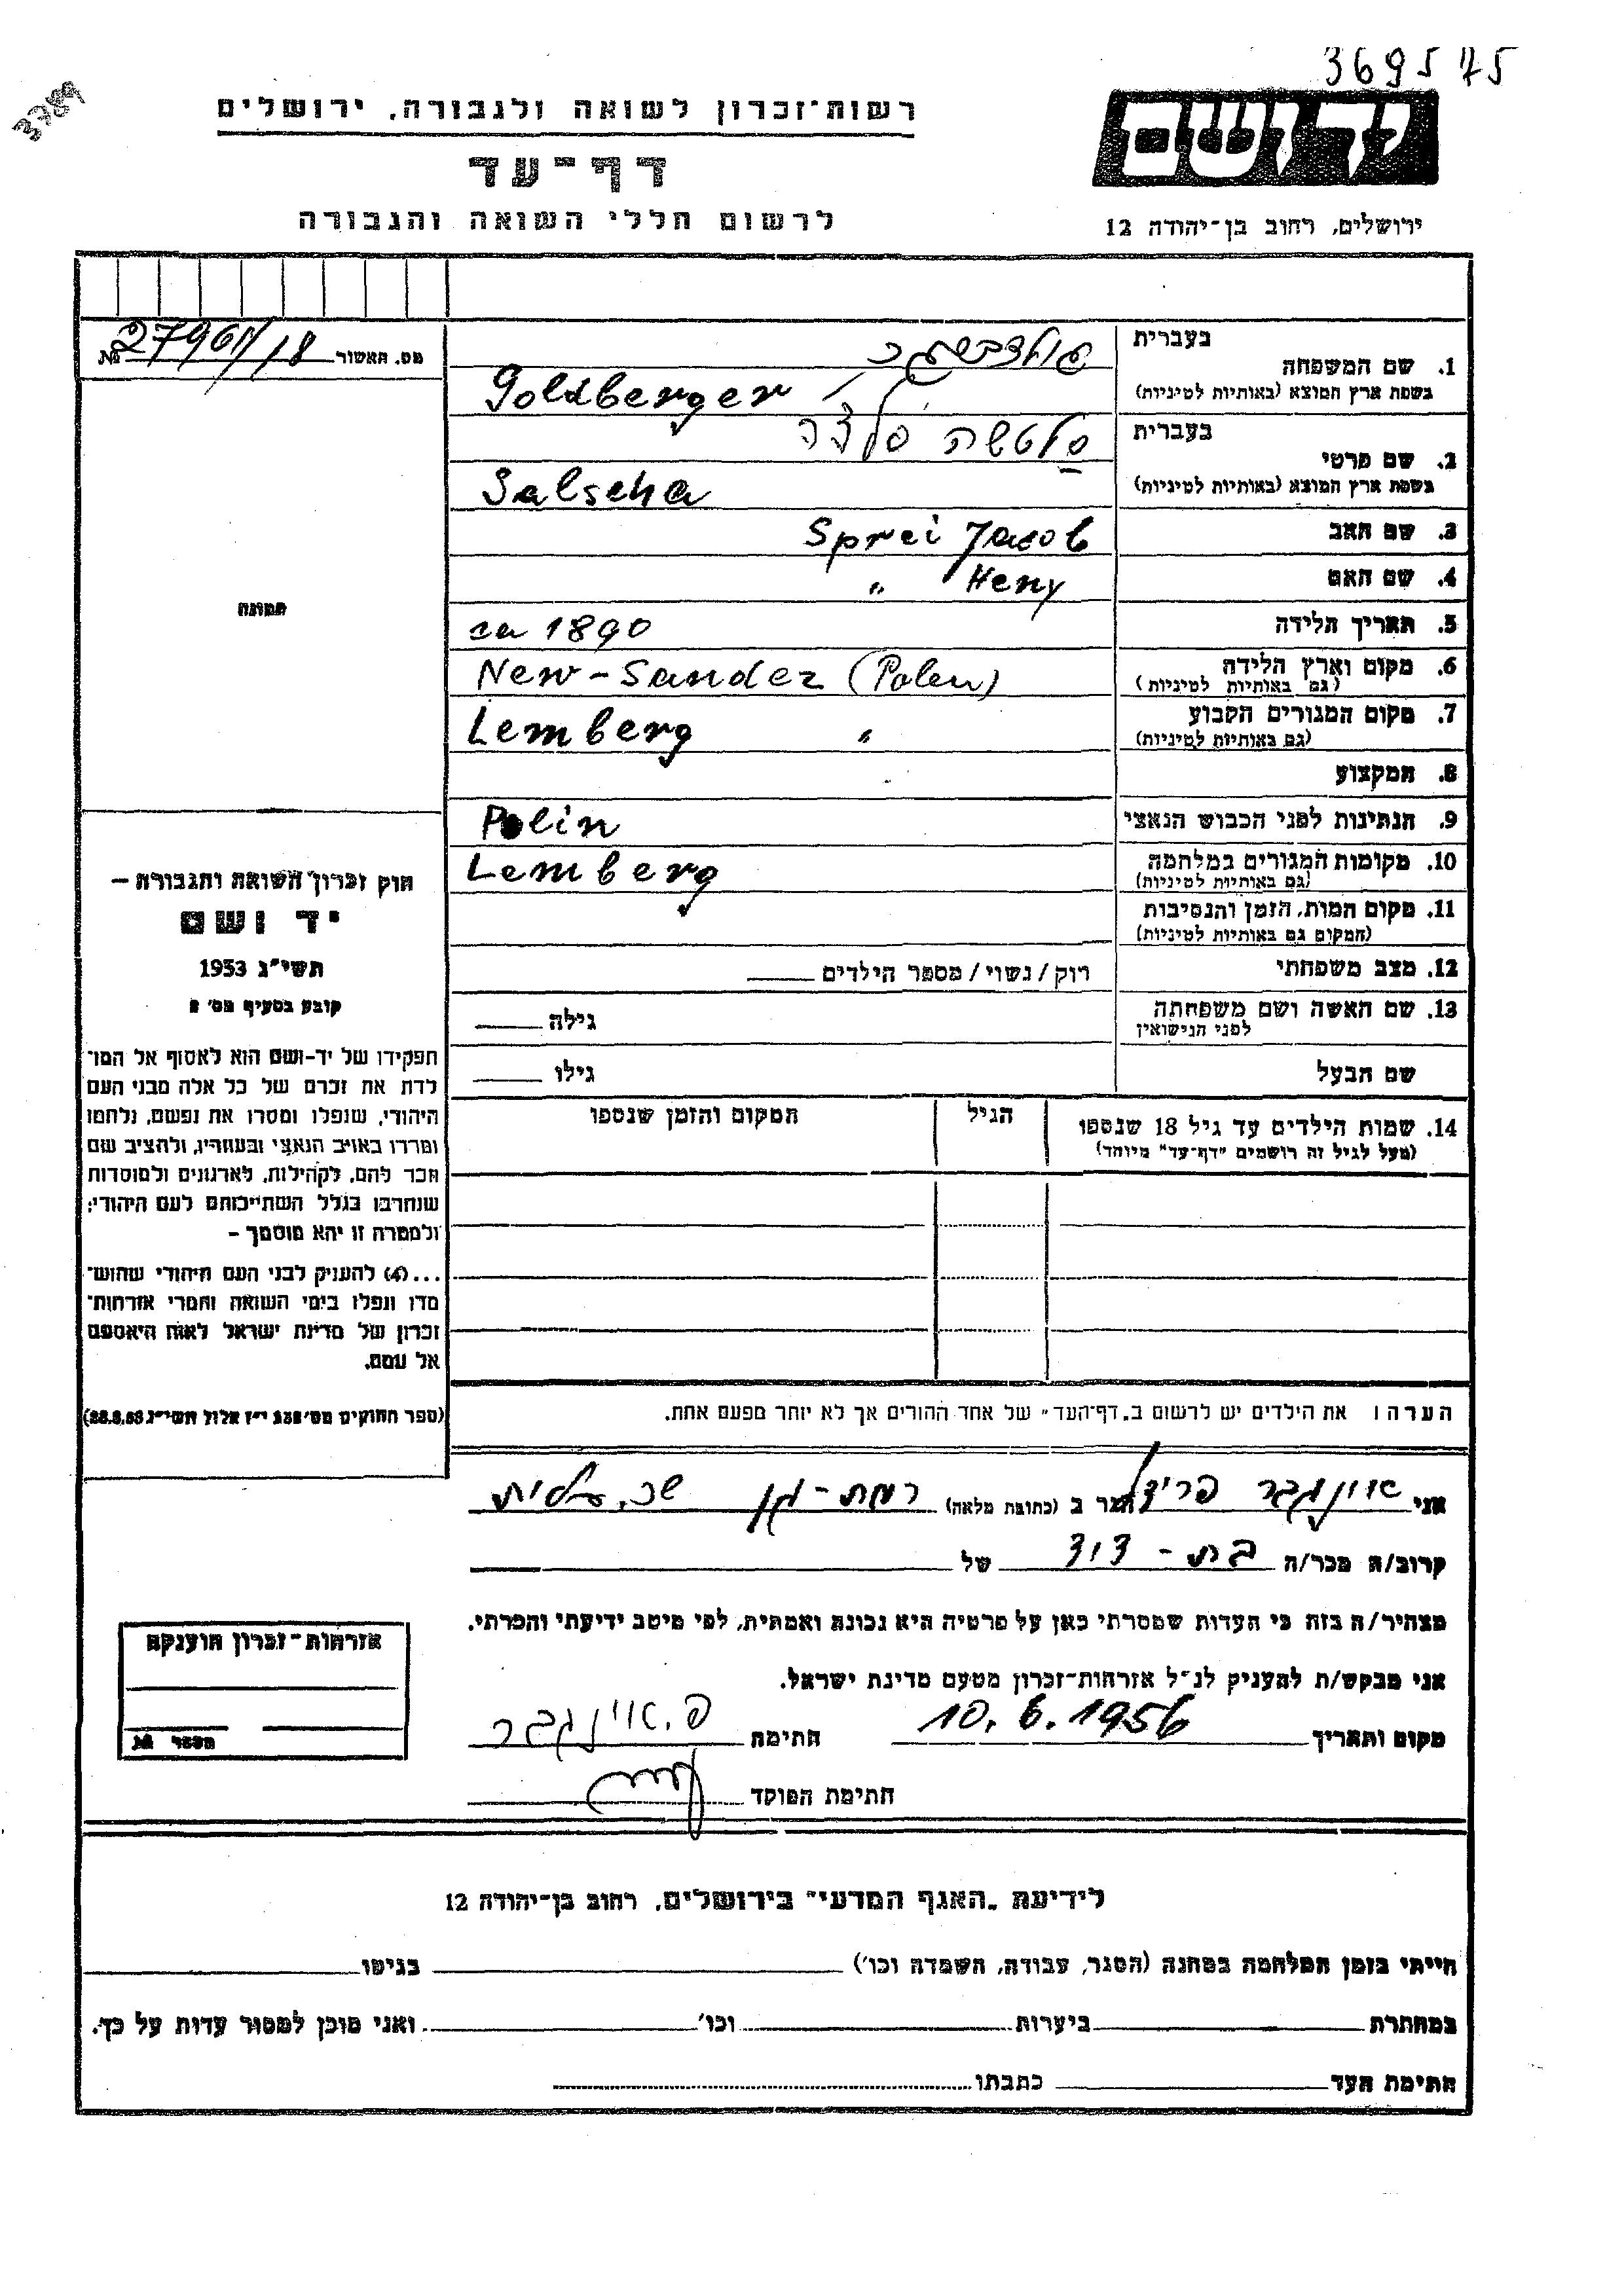 369575
3789
יד ושם
רשות-זכרון לשואה ולגבורה, ירושלים
דף-עד
לרשום חללי השואה והגבורה
ירושלים, רחוב בן-יהודה 12
מס. האשור № 27961/18
בעברית
1. שם המשפחה
בשפת ארץ המוצא (באותיות לטיניות) Goldberger
בעברית
2. שם פרטי
בשפת ארץ המוצא (באותיות לטיניות) Salscha
3. שם האב Sprei Jacob
4. שם האם " Heny
5. תאריך הלידה ca 1890
6. מקום וארץ הלידה New-Sandez (Polen)
(גם באותיות לטיניות)
7. מקום המגורים הקבוע Lemberg "
(גם באותיות לטיניות)
8. המקצוע
9. הנתינות לפני הכבוש הנאצי Polin
10. מקומות המגורים במלחמה Lemberg
(גם באותיות לטיניות)
11. מקום המות, הזמן והנסיבות
(המקום גם באותיות לטיניות)
12. מצב משפחתי רוק/נשוי/מספר הילדים
13. שם האשה ושם משפחתה גילה
לפני הנישואין
שם הבעל גילו
14. שמות הילדים עד גיל 18 שנספו הגיל המקום והזמן שנספו
(מעל לגיל זה רושמים "דף-עד" מיוחד)
תמונה
חוק זכרון השואה והגבורה –
יד ושם
תשי"ג 1953
קובע בסעיף מס' 2
תפקידו של יד-ושם הוא לאסוף אל המו־
לדת את זכרם של כל אלה מבני העם
היהודי, שנפלו ומסרו את נפשם, נלחמו
ומרדו באויב הנאצי ובעוזריו, ולהציב שם
וזכר להם, לקהילות, לארגונים ולמוסדות
שנחרבו בגלל השתייכותם לעם היהודי;
ולמטרה זו יהא מוסמך –
...(4) להעניק לבני העם היהודי שהוש־
מדו ונפלו בימי השואה והמרי אזרחות־
זכרון של מדינת ישראל לאות היאספם
אל עמם.
(ספר החוקים מס' 132 י"ז אלול תשי"ג 28.8.53)
הערה: את הילדים יש לרשום ב"דף-העד" של אחד ההורים אך לא יותר מפעם אחת.
אני אוינגבר פרידל הגר ב (כתובת מלאה) רמת-גן שכ. עלית
קרוב/ה מכר/ה בת-דוד של
מצהיר/ה בזה כי העדות שמסרתי כאן על פרטיה היא נכונה ואמתית, לפי מיטב ידיעתי והכרתי.
אני מבקש/ת להעניק לנ"ל אזרחות-זכרון מטעם מדינת ישראל.
מקום ותאריך 10.6.1956 חתימת פ. אוינגבר
חתימת הפוקד
אזרחות-זכרון הוענקה
מספר №
לידיעת "האגף המדעי" בירושלים, רחוב בן-יהודה 12
הייתי בזמן המלחמה במחנה (הסגר, עבודה, השמדה וכו') בגיטו
במחתרת ביערות וכו' ואני מוכן למסור עדות על כך.
חתימת העד כתבתו